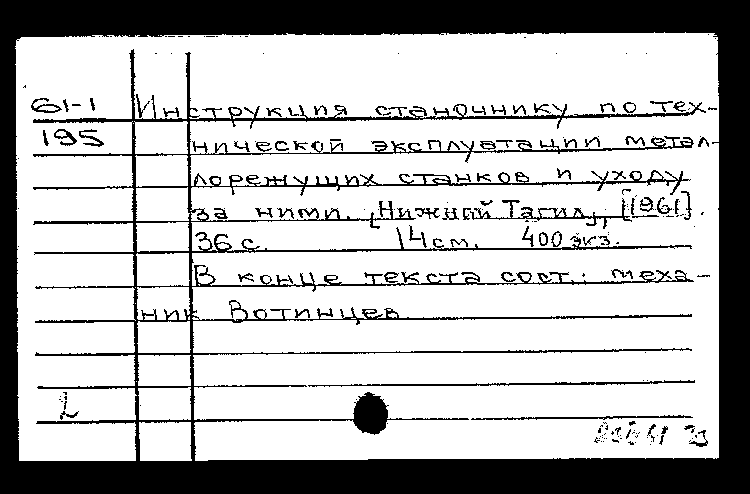 61-1 Инструкция станочнику по тех-
195 нической эксплуатации метал-
лорежущих станков и уходу
за ними. [Нижний Тагил], [1961].
36 с. 14 см. 400 экз.
В конце текста сост.: меха-
ник Вотинцев
2